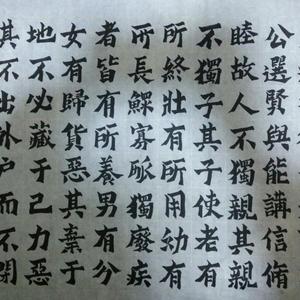 公選賢與能講信脩
睦故人不獨親其親
不獨子其子使老有
所終壯有所用幼有
所長鰥寡孤獨廢疾
者皆有所養男有分
女有歸貨惡其棄于
地不必藏于己力惡
其不出外戶而不閉